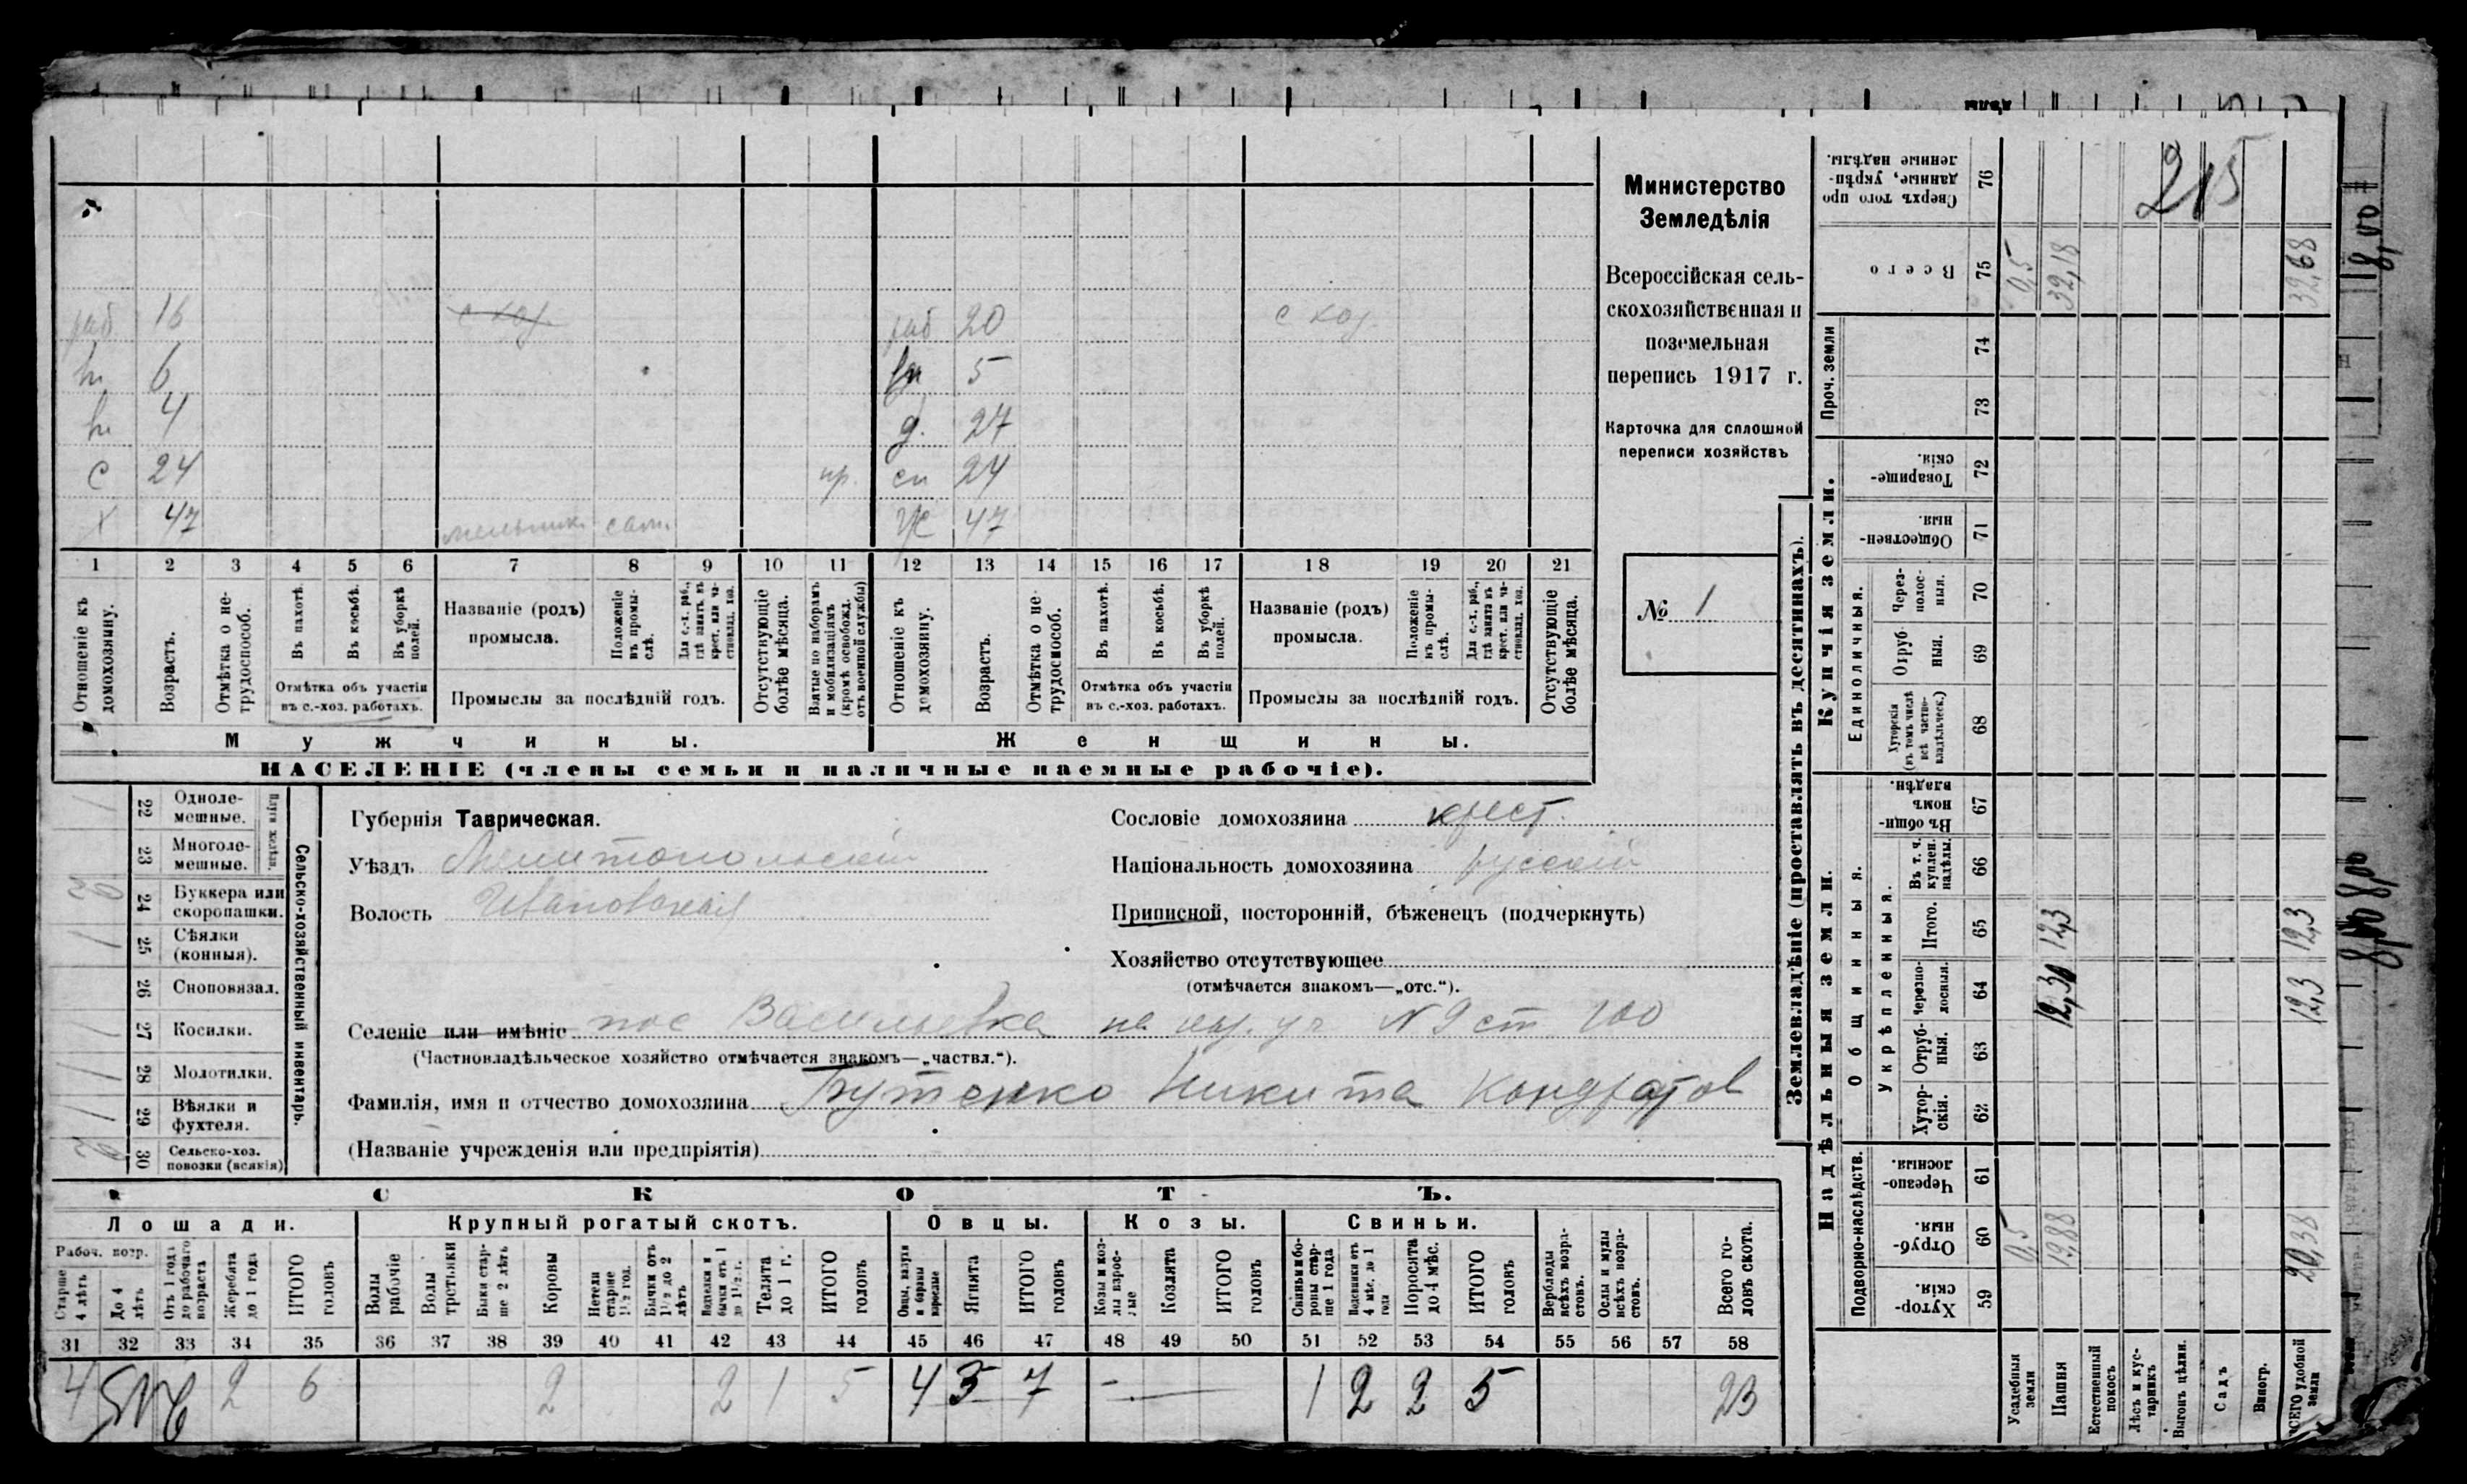 раб 16 с хоз. раб 20 с хоз.
6 5
4 д. 27
с 24 пр. сн 24
х 47 мельник сам. ж 47
1 2 3 4 5 6 7 8 9 10 11 12 13 14 15 16 17 18 19 20 21
Отношеніе къ домохозяину.
Возрастъ.
Отмѣтка о нетрудоспособ.
Въ пахотѣ.
Въ косьбѣ.
Въ уборкѣ полей.
Отмѣтка объ участіи
въ с.-хоз. работахъ.
Названіе (родъ)
промысла.
Положеніе въ промыслѣ.
Для с.-х. раб., гдѣ занятъ въ крест. или частновлад. хоз.
Промыслы за послѣдній годъ.
Отсутствующіе болѣе мѣсяца.
Взятые по наборамъ и мобилизаціямъ (кромѣ освобожд. отъ военной службы)
Отношеніе къ домохозяину.
Возрастъ.
Отмѣтка о нетрудоспособ.
Въ пахотѣ.
Въ косьбѣ.
Въ уборкѣ полей.
Отмѣтка объ участіи
въ с.-хоз. работахъ.
Названіе (родъ)
промысла.
Положеніе въ промыслѣ.
Для с.-х. раб., гдѣ занята въ крест. или частновлад. хоз.
Промыслы за послѣдній годъ.
Отсутствующіе болѣе мѣсяца.
Мужчины.
Женщины.
НАСЕЛЕНІЕ (члены семьи и наличные наемные рабочіе).
Министерство
Земледѣлія
Всероссійская сель-
скохозяйственная и
поземельная
перепись 1917 г.
Карточка для сплошной
переписи хозяйствъ
№ 1
Сельско-хозяйственный инвентарь.
Плуги желѣзн.
22 Одноле-
мешные. 1
23 Многоле-
мешные.
24 Буккера или
скоропашки.
25 Сѣялки
(конныя). 1
26 Сноповязал.
27 Косилки. 1
28 Молотилки. 1
29 Вѣялки и
фухтеля. 1
30 Сельско-хоз.
повозки (всякія)
Губернія Таврическая.
Уѣздъ Мелитопольскій
Волость Ивановская
Сословіе домохозяина крест.
Національность домохозяина русскій
Приписной, посторонній, бѣженецъ (подчеркнуть)
Хозяйство отсутствующее
(отмѣчается знакомъ—„отс.“).
Селеніе или имѣніе пос Васильевка на уч N 9 ст 200
(Частновладѣльческое хозяйство отмѣчается знакомъ—„частвл.“).
Фамилія, имя и отчество домохозяина Бутенко Никита Кондратов
(Названіе учрежденія или предпріятія)
СКОТЪ.
Лошади. Крупный рогатый скотъ. Овцы. Козы. Свиньи.
Рабоч. возр.
Старше 4 лѣтъ
До 4 лѣтъ
Отъ 1 года до рабочаго возраста
Жеребята до 1 года
ИТОГО головъ
Волы рабочіе
Волы третьяки
Быки старше 2 лѣтъ
Коровы
Нетели старше 1½ год.
Бычки отъ 1½ до 2 лѣтъ
Подтелки и бычки отъ 1 до 1½ г.
Телята до 1 г.
ИТОГО головъ
Овцы, валухи и бараны взрослые
Ягнята
ИТОГО головъ
Козы и козлы взрослые
Козлята
ИТОГО головъ
Свиньи боровы старше 1 года
Подсвинки отъ 4 мѣс. до 1 года
Поросята до 4 мѣс.
ИТОГО головъ
Верблюды всѣхъ возрастовъ.
Ослы и мулы всѣхъ возрастовъ.
Всего головъ скота.
31 32 33 34 35 36 37 38 39 40 41 42 43 44 45 46 47 48 49 50 51 52 53 54 55 56 57 58
4 2 6 2 2 1 5 4 3 7 — 1 2 2 5 23
Землевладѣніе (проставлять въ десятинахъ).
Надѣльныя земли. Купчія земли. Проч. земли
Подворно-наслѣдств. Общинныя. Укрѣпленныя. Единоличныя.
59 Хуторскія.
60 Отрубныя. 0,5 19,88 20,38
61 Черезполосныя.
62 Хуторскія.
63 Отрубныя.
64 Черезполосныя. 12,30 12,3
65 Итого. 12,3 12,3
66 Въ т. ч. куплен. надѣлы.
67 Въ общинномъ владѣн.
68 Хуторскія (въ томъ числѣ всѣ частновладѣльческ.)
69 Отрубныя.
70 Черезполосныя.
71 Общественныя.
72 Товарищескія.
73
74
75 Всего 0,5 32,18 32,68
76 Сверхъ того проданные, укрѣпленные надѣлы.
215
Усадебныя земли
Пашня
Естественный покосъ
Лѣсъ и кустарникъ
Выгонъ цѣлин.
Садъ
Виногр.
ВСЕГО удобной земли
8,00